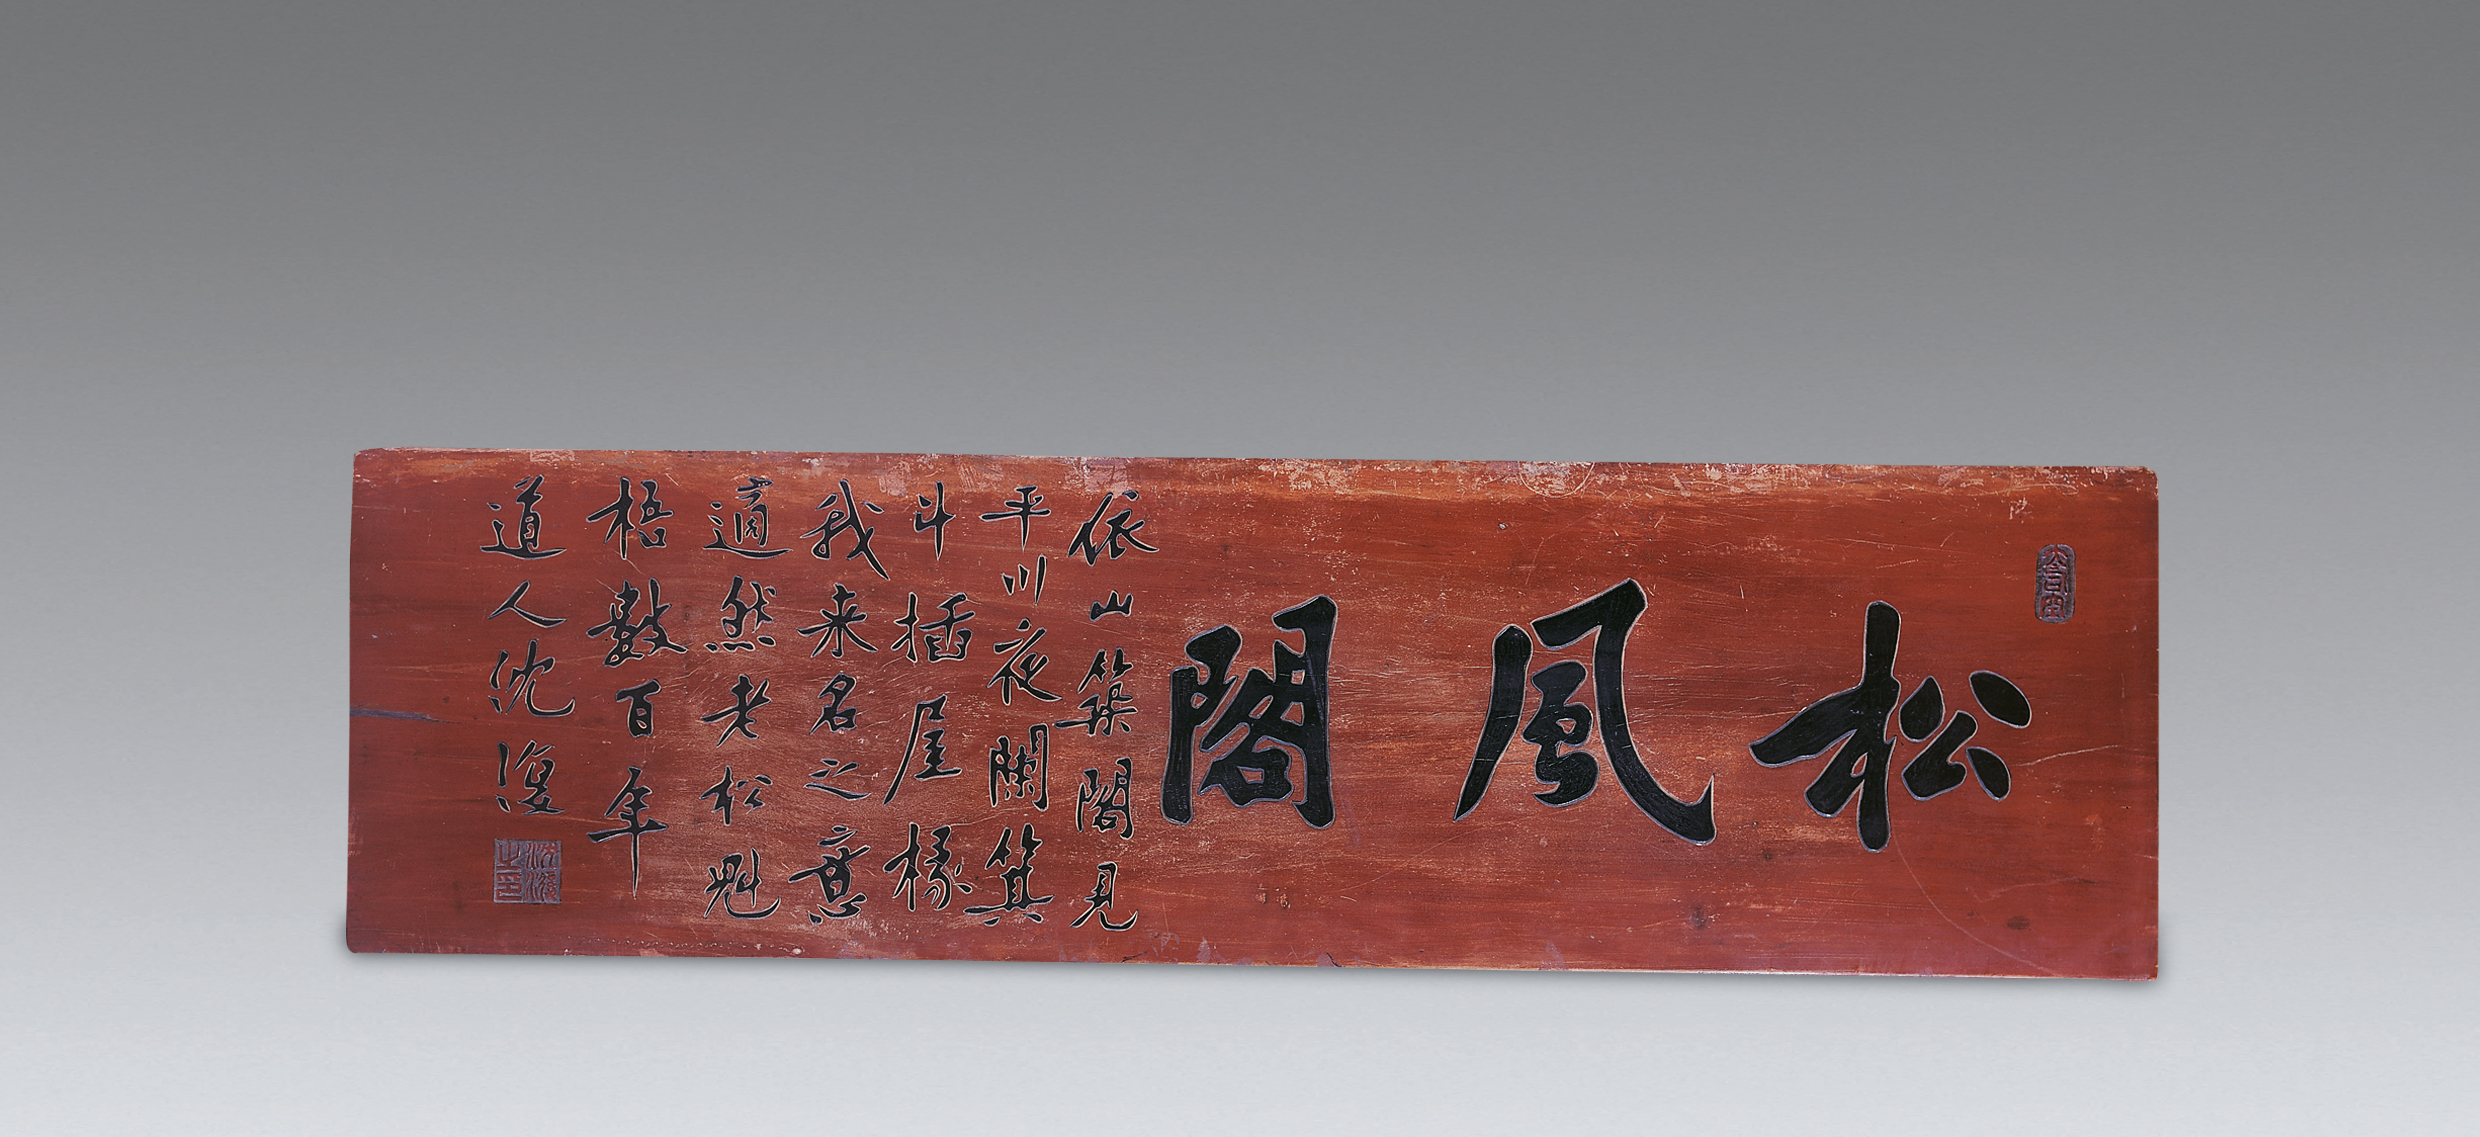 松風閣
依山築閣見
平川夜闌箕
斗插屋椽
我来名之意
適然老松魁
梧數百年
道人沈復
沈復之印